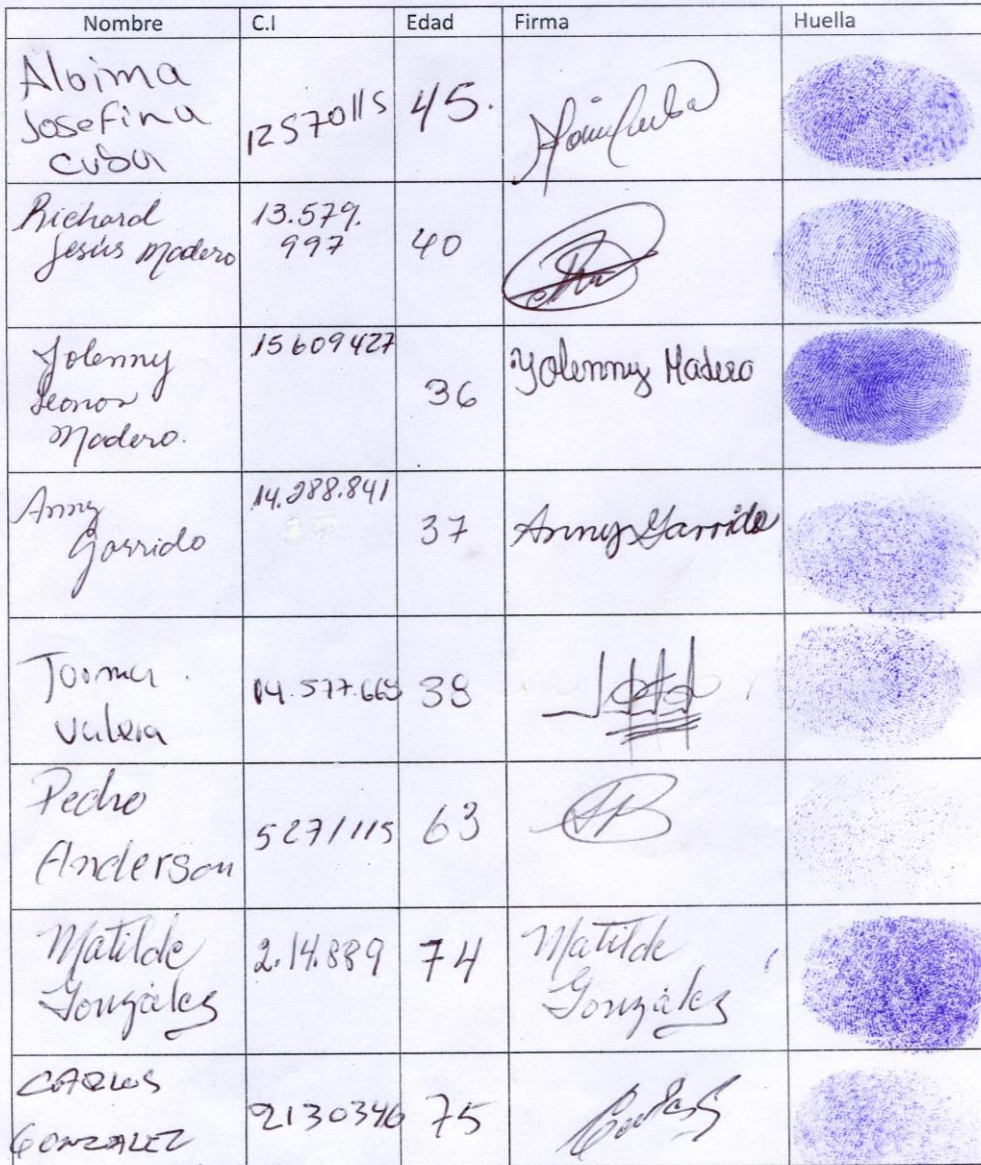 Nombre C.I Edad Firma Huella
Aloima
Josefina
Cuba
12570115 45.
Richard
Jesús Madero
13.579.
997
40
Yolenny
Leonor
Madero.
15609427
36
Yolenny Madero
Anny
Garrido
14.288.841
37
Anny Garrido
Valera
14.577.669 38
Pedro
Anderson
5271115 63
Matilde
González
2.14.889 74
Matilde
González
CARLOS
GONZALEZ
2130346 75